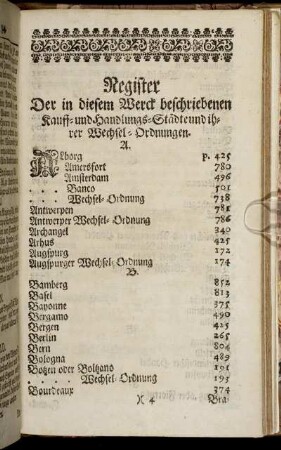 Register
Der in diesem Werck beschriebenen
Kauff- und Handlungs-Städte und ih-
rer Wechsel-Ordnungen.
A.
Alborg p. 425
Amersfort 780
Amsterdam 496
. . . Banco 501
. . . Wechsel-Ordnung 738
Antwerpen 781
Antwerper Wechsel-Ordnung 786
Archangel 340
Arhus 425
Augspurg 172
Augspurger Wechsel-Ordnung 174
B.
Bamberg 852
Basel 813
Bayonne 375
Bergamo 490
Bergen 425
Berlin 265
Bern 804
Bologna 489
Botzen oder Bolzano 191
. . . . Wechsel-Ordnung 193
Bourdeaux 374
)( 4 Bra-